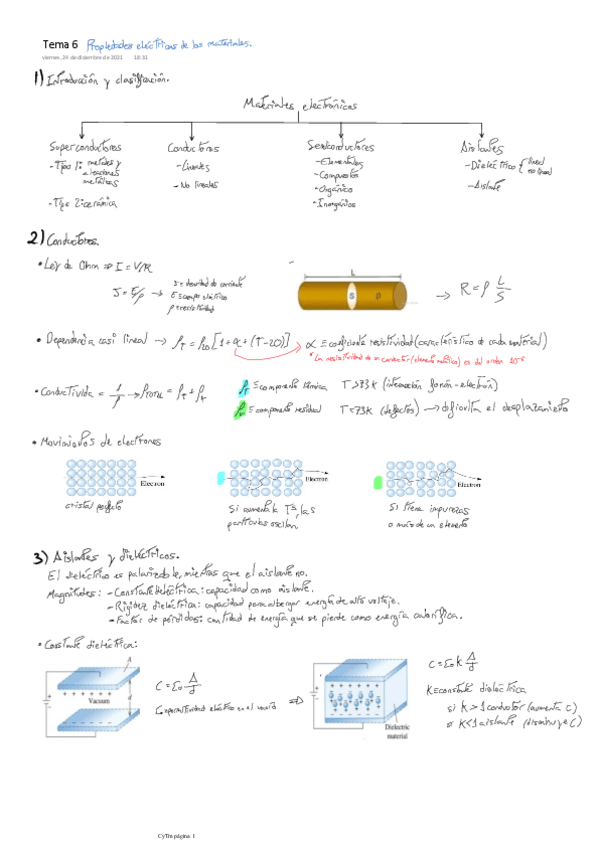 Tema 6 Propiedades eléctricas de los materiales.
viernes, 24 de diciembre de 2021 18:31
1) Introducción y clasificación.
Materiales electrónicos
Superconductores
- Tipo 1: metales y aleaciones metálicas
- Tipo 2: cerámica
Conductores
- Lineales
- No lineales
Semiconductores
- Elementales
- Compuestos
- Orgánico
- Inorgánicos
Aislantes
- Dieléctrico { lineal no lineal
- Aislante
2) Conductores.
• Ley de Ohm => I = V/R
J = E/ρ → J = densidad de corriente
E = campo eléctrico
ρ = resistividad
L
S
ρ
→ R = ρ L/S
• Dependencia casi lineal → ρt = ρ20 [1 + α + (T-20)] α ≡ coeficiente resistividad (característico de cada material)
* La resistividad de un conductor (elemento metálico) es del orden 10⁻⁸
• Conductivida = 1/ρ → ρTOTAL = ρt + ρr
ρt ≡ componente térmica T > 73K (interacción fonón-electrón)
ρr ≡ componente residual T < 73K (defectos) → dificulta el desplazamiento
• Movimientos de electrones
Electron
Electron
Electron
cristal perfecto
Si aumenta la Tª, las partículas oscilan.
Si tiene impurezas o más de un elemento
3) Aislantes y dieléctricos.
El dieléctrico es polarizable, mientras que el aislante no.
Magnitudes: - Constante dieléctrica: capacidad como aislante.
- Rigidez dieléctrica: capacidad para albergar energía de alto voltaje.
- Factor de pérdidas: cantidad de energía que se pierde como energía calorífica.
• Constante dieléctrica:
A
Vacuum
d
C = ε₀ A/d
ε₀ permitividad eléctrica en el vacío
=>
Dielectric material
C = ε₀ K A/d
K = constante dieléctrica
si K > 1 conductor (aumenta C)
si K < 1 aislante (disminuye C)
CyTIn página 1